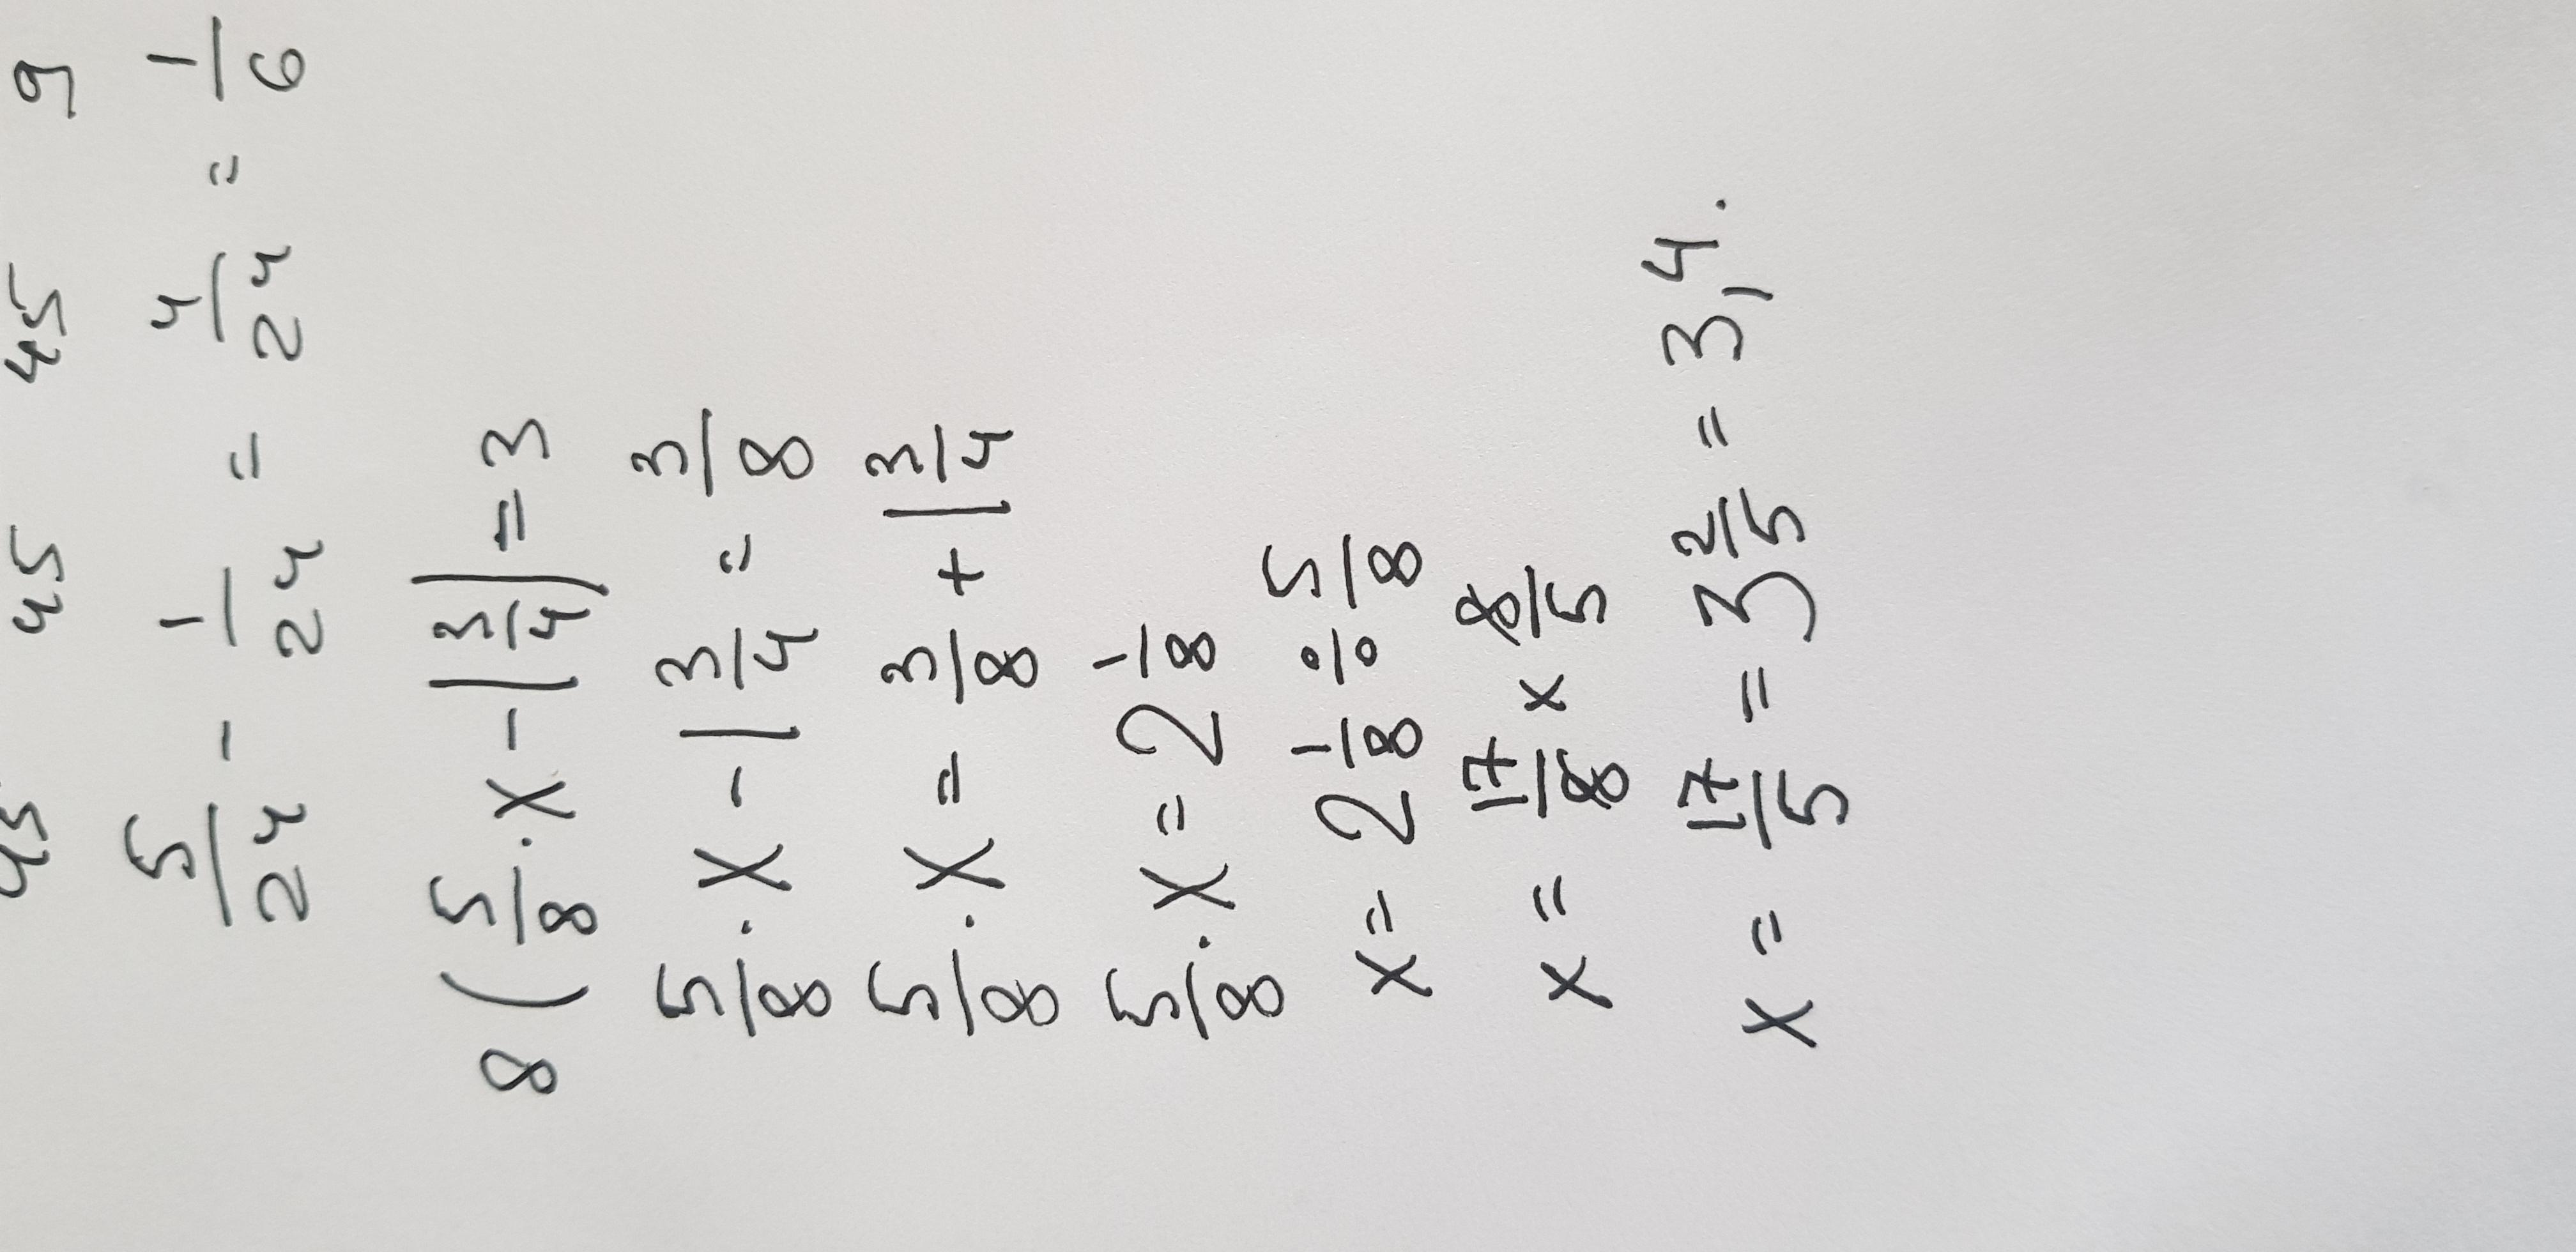 45 45 45 9
5/24 - 1/24 = 4/24 = 1/6
8 (5/8 · x - 1 3/4) = 3
5/8 · x - 1 3/4 = 3/8
5/8 · x = 3/8 + 1 3/4
5/8 · x = 2 1/8
x = 2 1/8 ÷ 5/8
x = 17/8 × 8/5
x = 17/5 = 3 2/5 = 3,4.